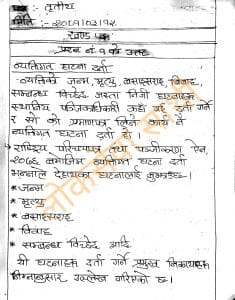 पद : तृतीय
मिति : २०८१०३/१२
खण्ड एक
प्रश्न नं. १ को उत्तर
व्यक्तिगत घटना दर्ता
व्यक्तिको जन्म, मृत्यु, बसाइसराइ, विवाह,
सम्बन्ध विच्छेद जस्ता निजी घटनाहरू
स्थानीय पञ्जिकाधिकारी कहाँ गई दर्ता गर्ने
र सो को प्रमाणपत्र लिने कार्य नै
व्यक्तिगत घटना दर्ता हो ।
राष्ट्रिय परिचयपत्र तथा पञ्जीकरण ऐन,
२०७६ बमोजिम व्यक्तिगत घटना दर्ता
भन्नाले देहायका घटनालाई बुझाउँछ:-
* जन्म
* मृत्यु
* बसाइसराइ
* विवाह
* सम्बन्ध विच्छेद आदि
यी घटनाहरू दर्ता गर्ने प्रमुख निकायहरू
निम्नानुसार उल्लेख गरिएको छ:-